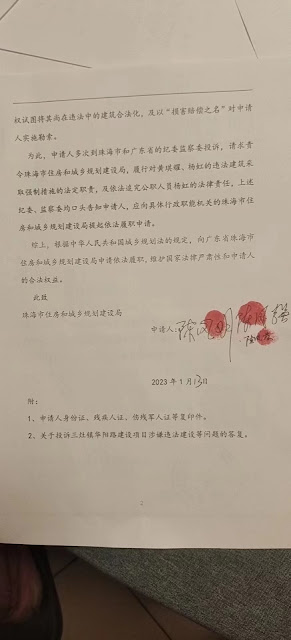 权试图将其尚在违法中的建筑合法化，及以“损害赔偿之名”对申请
人实施勒索。
为此，申请人多次到珠海市和广东省的纪委监察委投诉，请求责
令珠海市住房和城乡规划建设局，履行对黄琪耀、杨虹的违法建筑采
取强制措施的法定职责，及依法追究公职人员杨虹的法律责任，上述
纪委、监察委均口头告知申请人，应向具体行政职能机关的珠海市住
房和城乡规划建设局提起依法履职申请。
综上，根据中华人民共和国城乡规划法的规定，向广东省珠海市
住房和城乡规划建设局申请依法履职，维护国家法律严肃性和申请人
的合法权益。
此致
珠海市住房和城乡规划建设局
申请人：
2023 年 1 月 13 日
附：
1、申请人身份证、残疾人证、伤残军人证等复印件。
2、关于投诉三灶镇华阳路建设项目涉嫌违法建设等问题的答复。
2